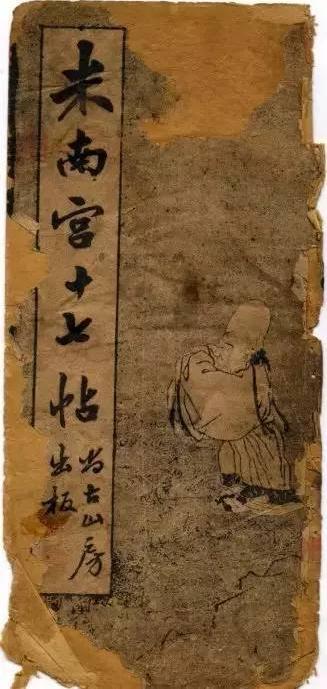 米南宫十七帖
尚古山房
出板